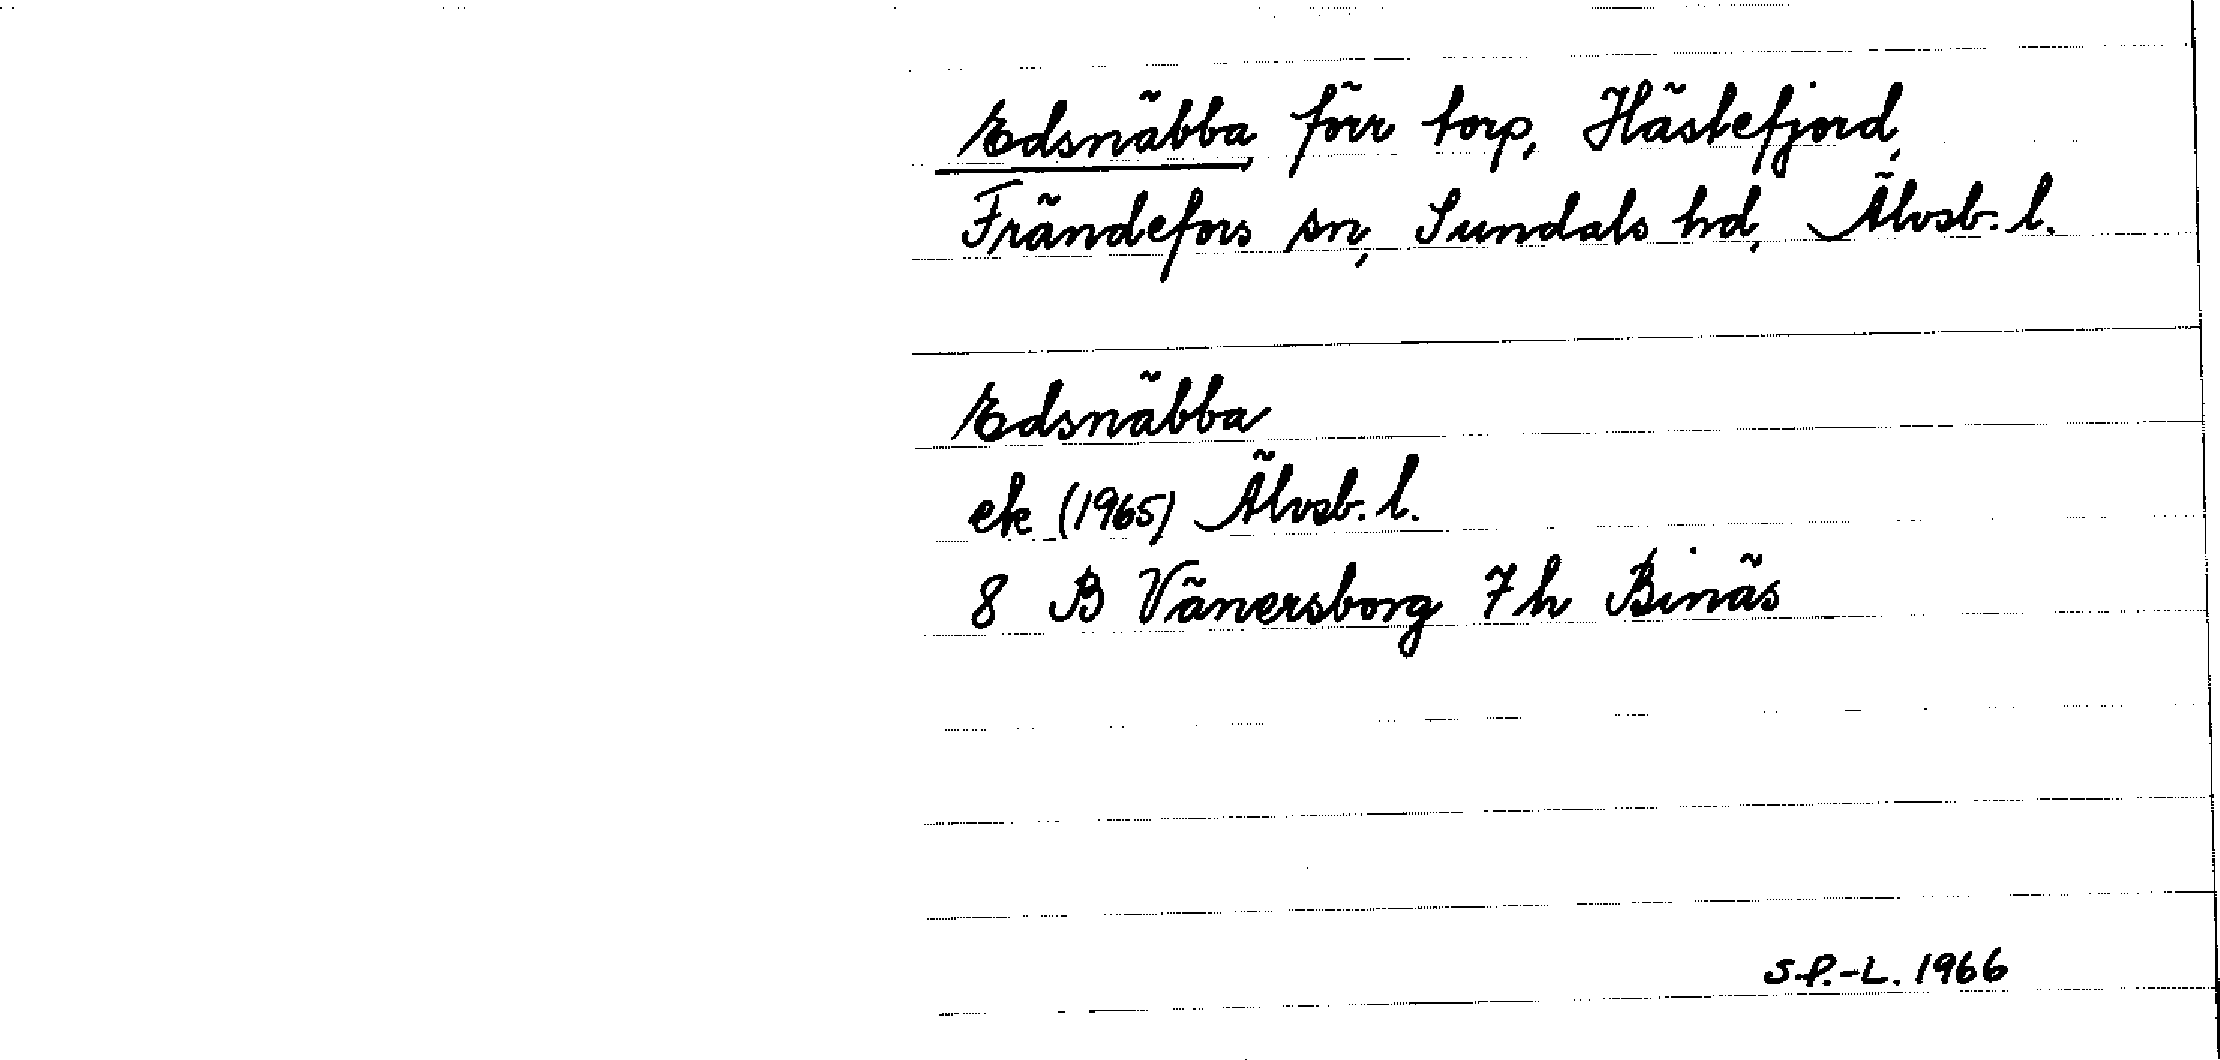 Edsnäbba förr torp, Hästefjord,
Frändefors sn, Sundals hd, Älvsb. l.
Edsnäbba
ek (1965) Älvsb. l.
8 B Vänersborg 7 h Binäs
S.P.-L. 1966